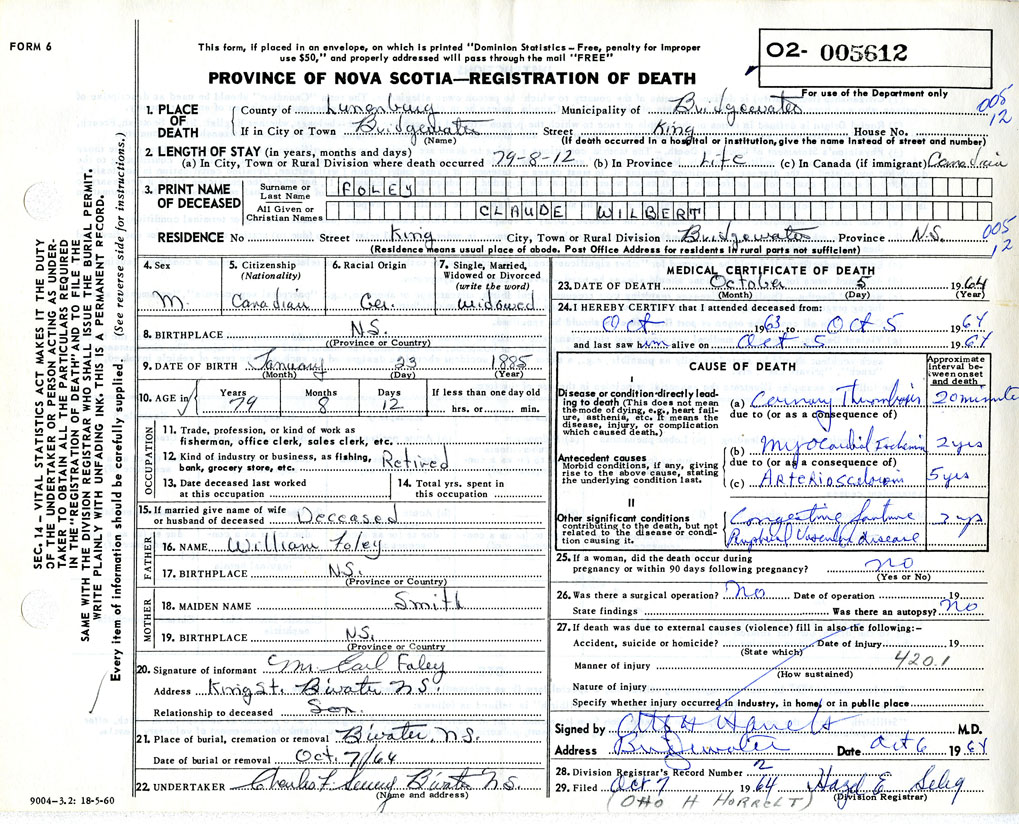 FORM 6
This form, if placed in an envelope, on which is printed "Dominion Statistics – Free, penalty for improper
use $50," and properly addressed will pass through the mail "FREE"
O2- 005612
For use of the Department only
PROVINCE OF NOVA SCOTIA—REGISTRATION OF DEATH
005
12
1. PLACE OF DEATH
County of Lunenburg Municipality of Bridgewater
If in City or Town Bridgewater Street King House No.
(Name) (If death occurred in a hospital or institution, give the name instead of street and number)
2. LENGTH OF STAY (in years, months and days)
(a) In City, Town or Rural Division where death occurred 79-8-12 (b) In Province Life (c) In Canada (if immigrant) Canadian
3. PRINT NAME OF DECEASED
Surname or Last Name FOLEY
All Given or Christian Names CLAUDE WILBERT
RESIDENCE No Street King City, Town or Rural Division Bridgewater Province N.S.
005
12
(Residence means usual place of abode. Post Office Address for residents in rural parts not sufficient)
4. Sex M.
5. Citizenship (Nationality) Canadian
6. Racial Origin Ger.
7. Single, Married, Widowed or Divorced (write the word) Widowed
8. BIRTHPLACE N.S.
((Province or Country)
9. DATE OF BIRTH January 23 1885
(Month) (Day) (Year)
10. AGE in Years 79 Months 8 Days 12 If less than one day old hrs. or min.
OCCUPATION
11. Trade, profession, or kind of work as
fisherman, office clerk, sales clerk, etc.
12. Kind of industry or business, as fishing,
bank, grocery store, etc. Retired
13. Date deceased last worked
at this occupation
14. Total yrs. spent in
this occupation
15. If married give name of wife
or husband of deceased Deceased
FATHER
16. NAME William Foley
17. BIRTHPLACE N.S.
(Province or Country)
MOTHER
18. MAIDEN NAME Smith
19. BIRTHPLACE N.S.
(Province or Country
20. Signature of informant Mr. Earl Foley
Address King St. B'water N.S.
Relationship to deceased Son.
21. Place of burial, cremation or removal B'water, N.S.
Date of burial or removal Oct. 7/64
22. UNDERTAKER Charles F B'water N.S.
(Name and address)
9004-3.2: 18-5-60
MEDICAL CERTIFICATE OF DEATH
23. DATE OF DEATH October 5 1964
(Month) (Day) (Year)
24. I HEREBY CERTIFY that I attended deceased from:
Oct 1963 to Oct. 5 1964
and last saw him alive on Oct. 5 1964
CAUSE OF DEATH
Approximate interval between onset and death
I
Disease or condition directly leading to death (This does not mean
the mode of dying, e.g., heart failure, asthenia, etc. It means the
disease, injury, or complication
which caused death.)
(a) Coronary Thrombosis 20 minutes
due to (or as a consequence of)
Antecedent causes
Morbid conditions, if any, giving
rise to the above cause, stating
the underlying condition last.
(b) Myocardial Ischemia 2 yrs
due to (or as a consequence of)
(c) Arteriosclerosis 5 yrs
II
Other significant conditions
contributing to the death, but not
related to the disease or condition causing it.
Congestive failure yrs
Peripheral Vascular disease
25. If a woman, did the death occur during
pregnancy or within 90 days following pregnancy? no
(Yes or No)
26. Was there a surgical operation? No Date of operation 19
State findings Was there an autopsy? No
27. If death was due to external causes (violence) fill in also the following:-
Accident, suicide or homicide? Date of injury 19
(State which) 420.1
Manner of injury
(How sustained)
Nature of injury
Specify whether injury occurred in industry, in home, or in public place
Signed by Otto H M.D.
Address Bridgewater Date Oct 6 1964
28. Division Registrar's Record Number 2
29. Filed Oct 7 1964 Hazel E Selig
(Division Registrar)
(OTTO H HORRELT)
SEC. 14 – VITAL STATISTICS ACT MAKES IT THE DUTY
OF THE UNDERTAKER OR PERSON ACTING AS UNDERTAKER TO OBTAIN ALL THE PARTICULARS REQUIRED
IN THE "REGISTRATION OF DEATH" AND TO FILE THE
SAME WITH THE DIVISION REGISTRAR WHO SHALL ISSUE THE BURIAL PERMIT.
WRITE PLAINLY WITH UNFADING INK. THIS IS A PERMANENT RECORD.
Every item of information should be carefully supplied. (See reverse side for instructions.)